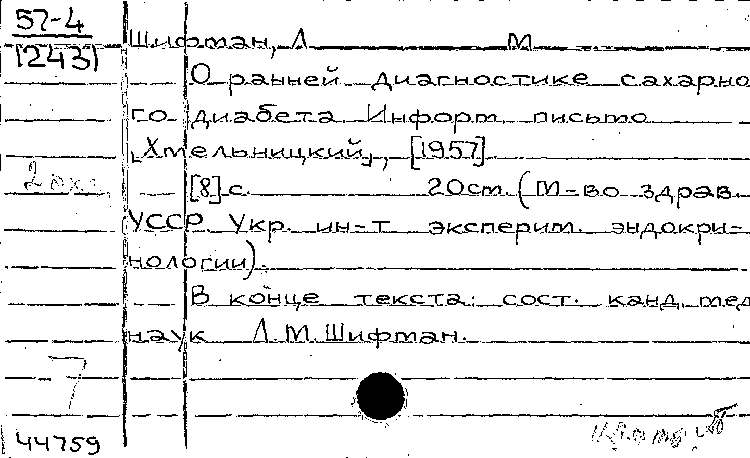 57-4
12431
Шифман, Л М
О ранней диагностике сахарно
го диабета Информ. письмо
[Хмельницкий], [1957].
2 экз.
[8] с. 20см. (М-во здрав.
УССР. Укр. ин-т эксперим. эндокри-
нологии).
В конце текста: сост. канд. мед
наук Л.М. Шифман.
7
44759